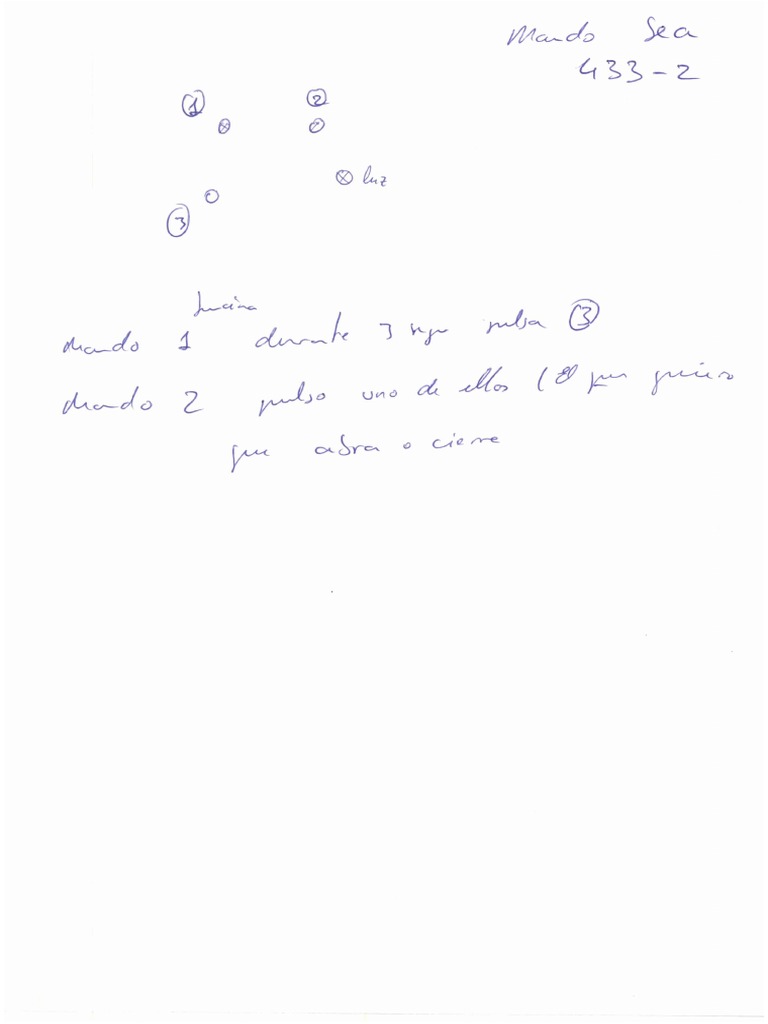 Mando Sea
433-2
1 2
luz
3
funciona
Mando 1 durante 3 segu pulsa 3
Mando 2 pulso uno de ellos (El que quiero
que abra o cierre